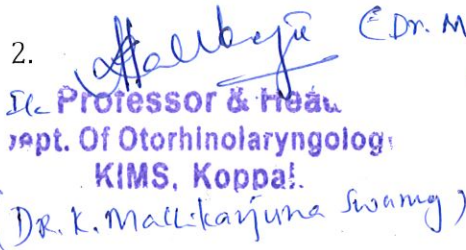 2.
(Dr. M
I/c Professor & Head
Dept. Of Otorhinolaryngology
KIMS, Koppal.
(DR. K. Mallikarjuna Swamy)